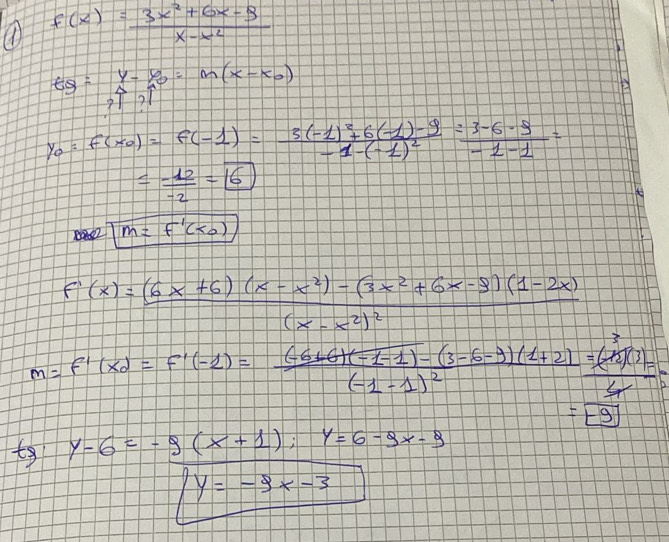 ① f(x) = (3x² + 6x - 9)/(x - x²)
tg = y - y₀ = m(x - x₀)
?↑ ?↑
y₀ = f(x₀) = f(-1) = (3(-1)²+6(-1)-9)/(-1-(-1)²) = (3-6-9)/(-1-1) =
= -12/-2 = 6
m = f'(x₀)
f'(x) = ((6x+6)(x-x²) - (3x²+6x-9)(1-2x))/(x-x²)²
m = f'(x₀) = f'(-1) = ((-6+6)(-1-1) - (3-6-9)(1+2))/(-1-1)² = (-12)(3)/4 =
3
= -9
tg: y-6 = -9(x+1); y = 6-9x-9
y = -9x-3